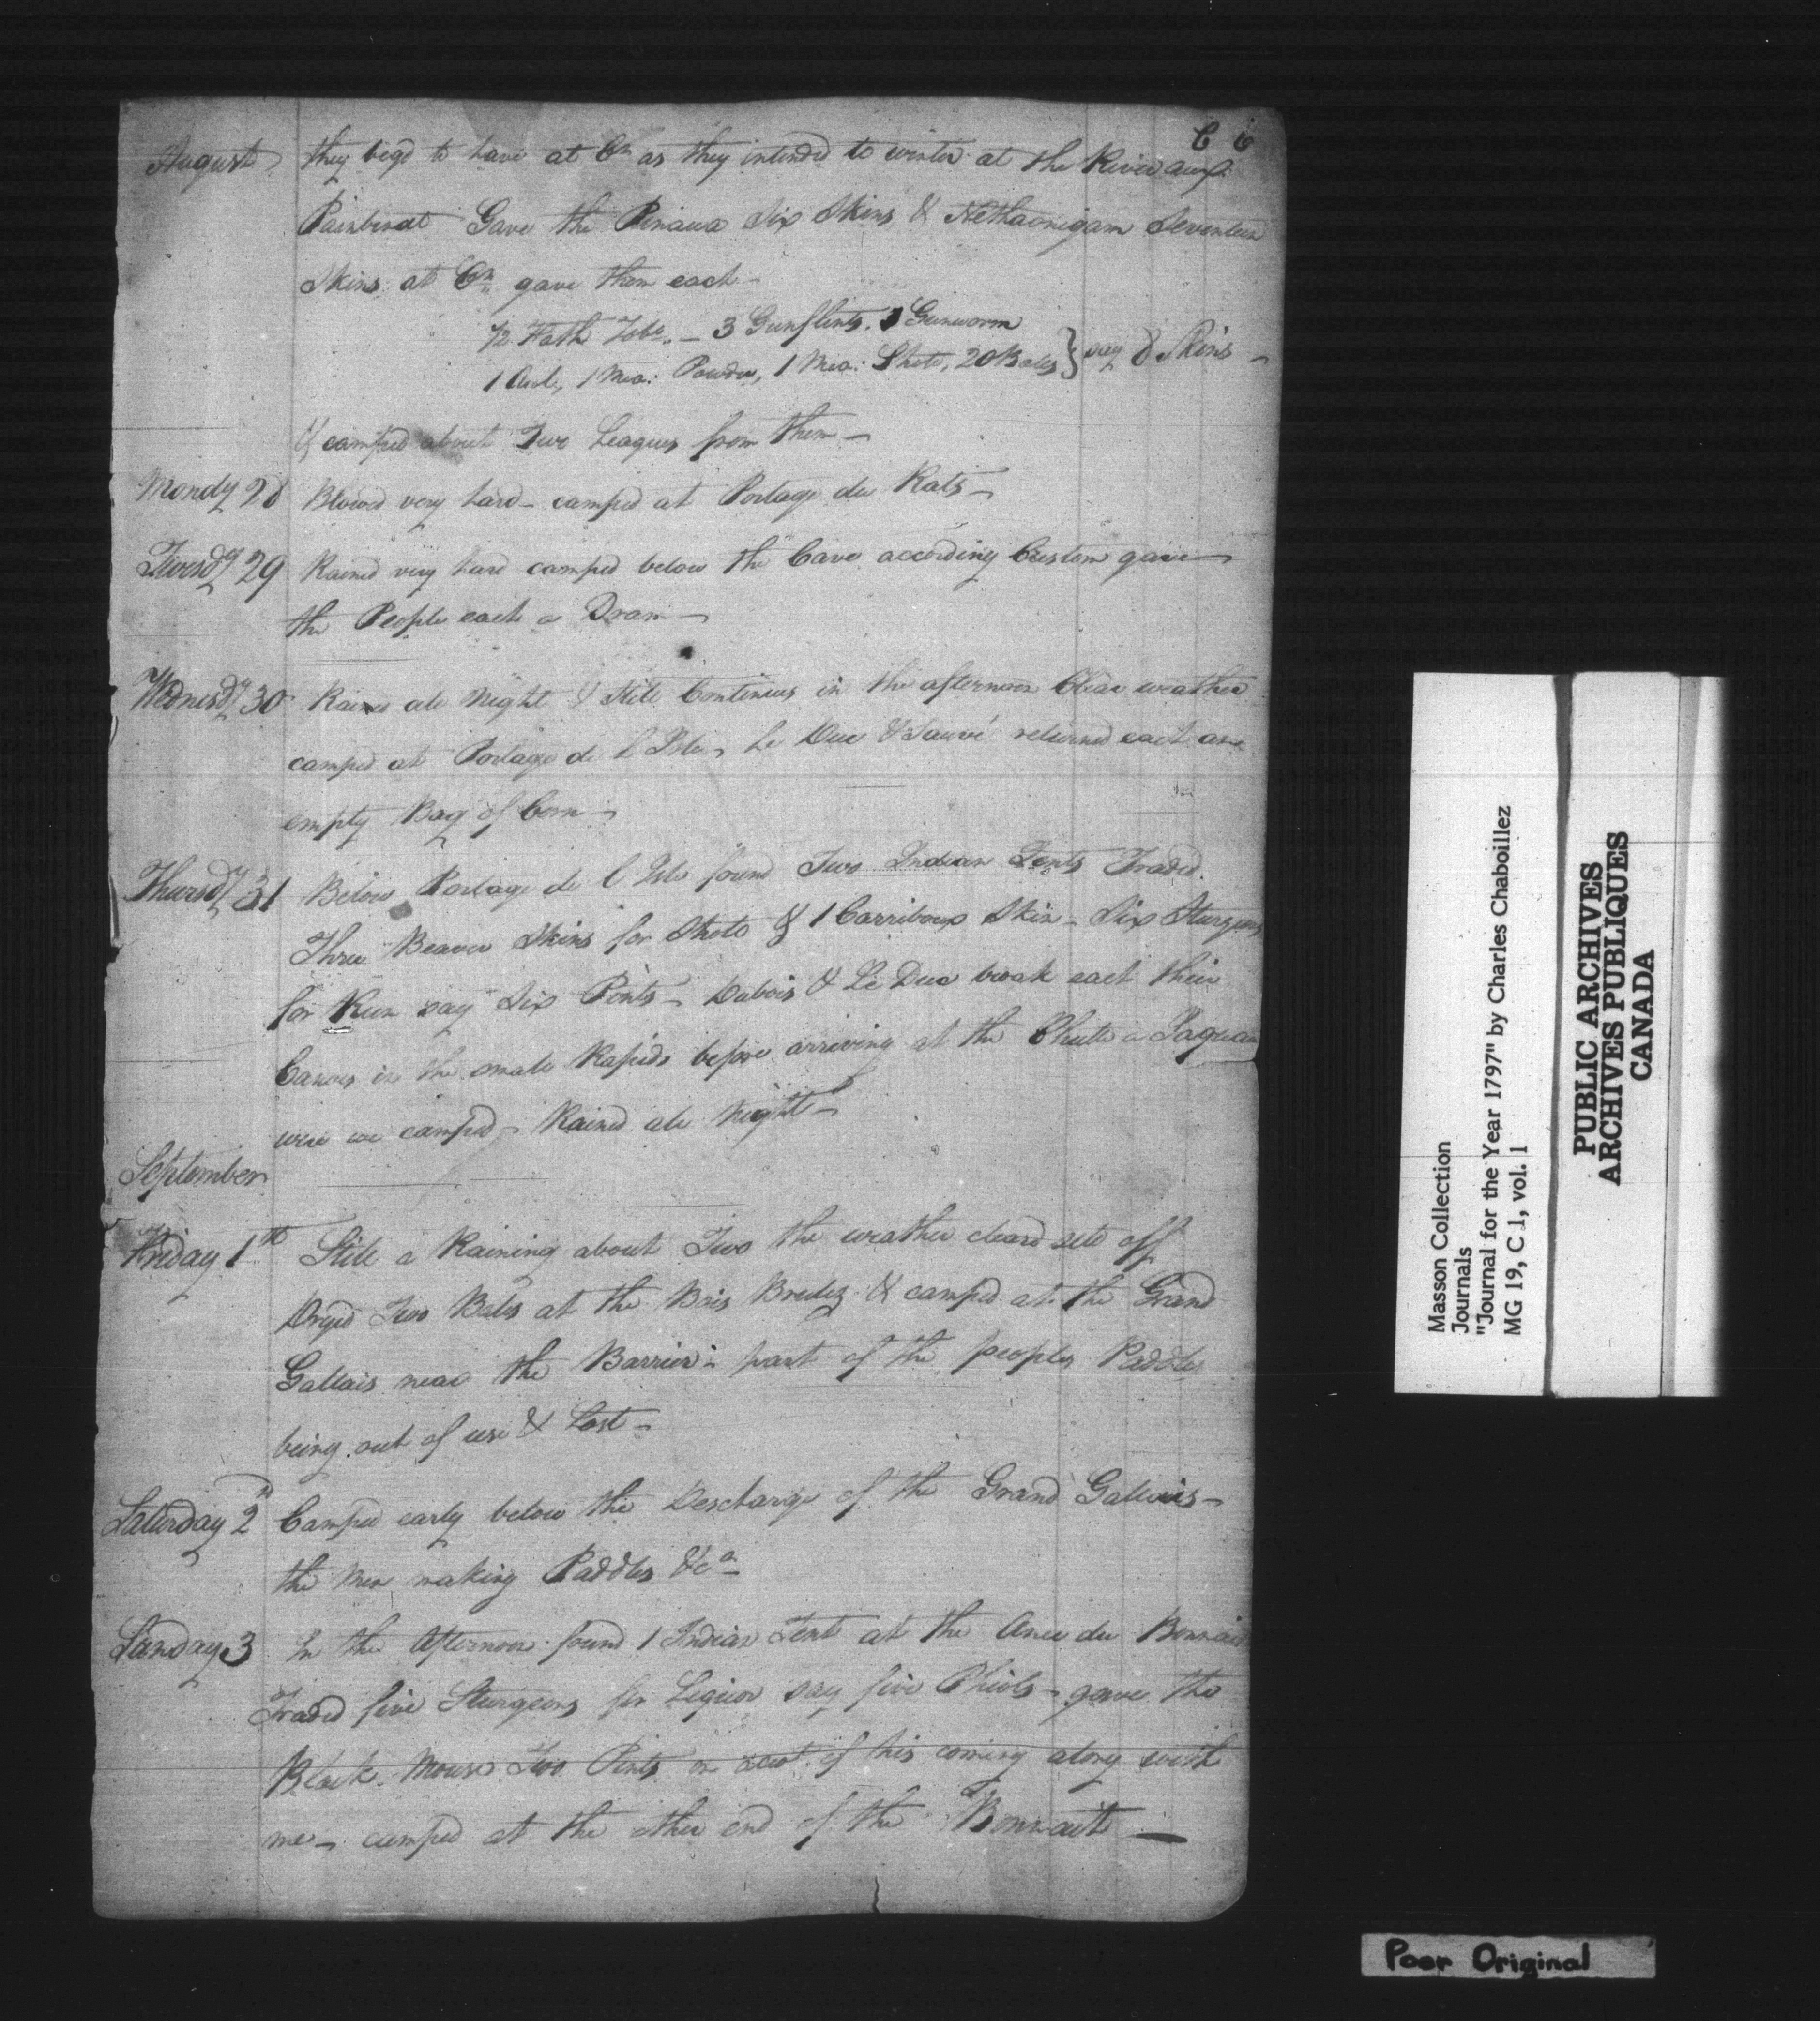 C 6
August they begd to have at Cr. as they intended to winter at the River aux
Painbinat Gave the Pinawa Six Skins & Nethaonigam Seventeen
Skins at Cr. gave them each —
1/2 Fath Tobo. — 3 Gunflints. 3 Gunworm
1 Awl, 1 Mea: Powder, 1 Mea: Shott, 20 Balls } say 8 Skins —
& camped about Two Leagues from them —
Mondy 28 Blowed very hard — camped at Portage du Rats —
Tuesdy 29 Rained very hard camped below the Cave according Custom gave
the People each a Dram —
Wednesdy 30 Rained all Night & Still Continues in the afternoon Clear weather
camped at Portage de l Isle — Le Duc & Sauvé returned each an
empty Bag of Corn —
Thursdy 31 Below Portage de l Isle found Two Indian Tents Traded
Three Beaver Skins for Shott & 1 Carriboux Skin — Six Sturgeons
for Rum say Six Points — Dubois & Le Duc broak each their
Canoes in the small Rapids before arriving at the Chutte a Jaquau
were we camped — Rained all Night —
September
Friday 1st Still a Raining about Two the weather cleard sett off
Dryed Two Bales at the Bois Brulez & camped at the Grand
Gallais near the Barrier — part of the peoples Paddles
being out of use & Lost —
Saturday 2d Camped early below the Descharge of the Grand Gallais —
the Men making Paddles &ca —
Sunday 3 In the Afternoon found 1 Indian Tent at the Ance du Bonnait
Traded five Sturgeons for Liquor say five Phiols — gave the
Black Mouse Two Pints on acct. of his coming along with
me — camped at the other end of the Bonnait —
Masson Collection
Journals
"Journal for the Year 1797" by Charles Chaboillez
MG 19, C 1, vol. 1
PUBLIC ARCHIVES
ARCHIVES PUBLIQUES
CANADA
Poor Original